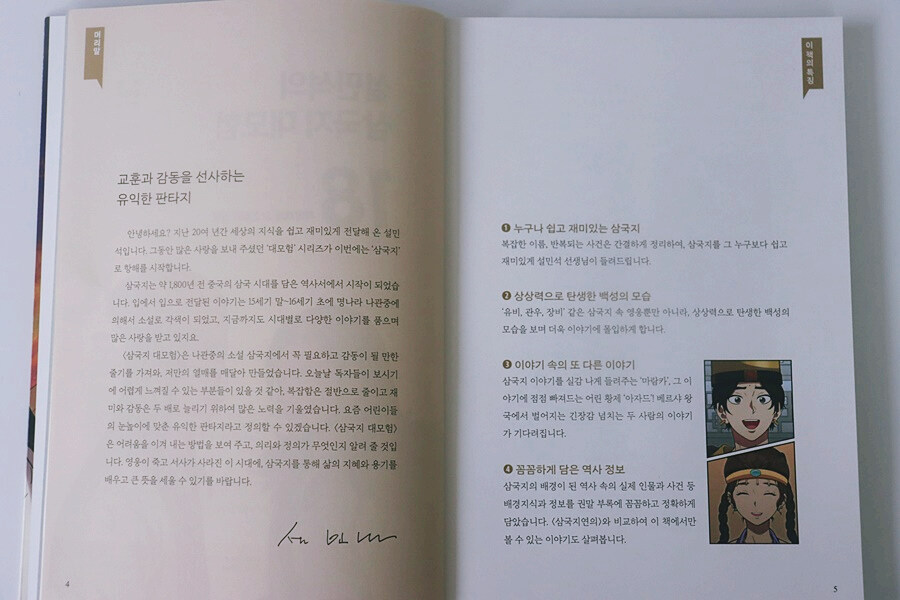 머리말
교훈과 감동을 선사하는
유익한 판타지
안녕하세요? 지난 20여 년간 세상의 지식을 쉽고 재미있게 전달해 온 설민
석입니다. 그동안 많은 사랑을 보내 주셨던 '대모험' 시리즈가 이번에는 '삼국지'
로 항해를 시작합니다.
삼국지는 약 1,800년 전 중국의 삼국 시대를 담은 역사서에서 시작이 되었습니
다. 입에서 입으로 전달된 이야기는 15세기 말~16세기 초에 명나라 나관중에
의해서 소설로 각색이 되었고, 지금까지도 시대별로 다양한 이야기를 품으며
많은 사랑을 받고 있지요.
〈삼국지 대모험〉은 나관중의 소설 삼국지에서 꼭 필요하고 감동이 될 만한
줄기를 가져와, 저만의 열매를 매달아 만들었습니다. 오늘날 독자들이 보시기
에 어렵게 느껴질 수 있는 부분들이 있을 것 같아, 복잡함은 절반으로 줄이고 재
미와 감동은 두 배로 늘리기 위하여 많은 노력을 기울였습니다. 요즘 어린이들
의 눈높이에 맞춘 유익한 판타지라고 정의할 수 있겠습니다. 〈삼국지 대모험〉
은 어려움을 이겨 내는 방법을 보여 주고, 의리와 정의가 무엇인지 알려 줄 것입
니다. 영웅이 죽고 서사가 사라진 이 시대에, 삼국지를 통해 삶의 지혜와 용기를
배우고 큰 뜻을 세울 수 있기를 바랍니다.
설민석
4
이 책의 특징
❶ 누구나 쉽고 재미있는 삼국지
복잡한 이름, 반복되는 사건은 간결하게 정리하여, 삼국지를 그 누구보다 쉽고
재미있게 설민석 선생님이 들려드립니다.
❷ 상상력으로 탄생한 백성의 모습
'유비, 관우, 장비' 같은 삼국지 속 영웅뿐만 아니라, 상상력으로 탄생한 백성의
모습을 보며 더욱 이야기에 몰입하게 합니다.
❸ 이야기 속의 또 다른 이야기
삼국지 이야기를 실감 나게 들려주는 '마람카', 그 이
야기에 점점 빠져드는 어린 황제 '아자드'! 페르샤 왕
국에서 벌어지는 긴장감 넘치는 두 사람의 이야기
가 기다려집니다.
❹ 꼼꼼하게 담은 역사 정보
삼국지의 배경이 된 역사 속의 실제 인물과 사건 등
배경지식과 정보를 권말 부록에 꼼꼼하고 정확하게
담았습니다. 〈삼국지연의〉와 비교하여 이 책에서만
볼 수 있는 이야기도 살펴봅니다.
5